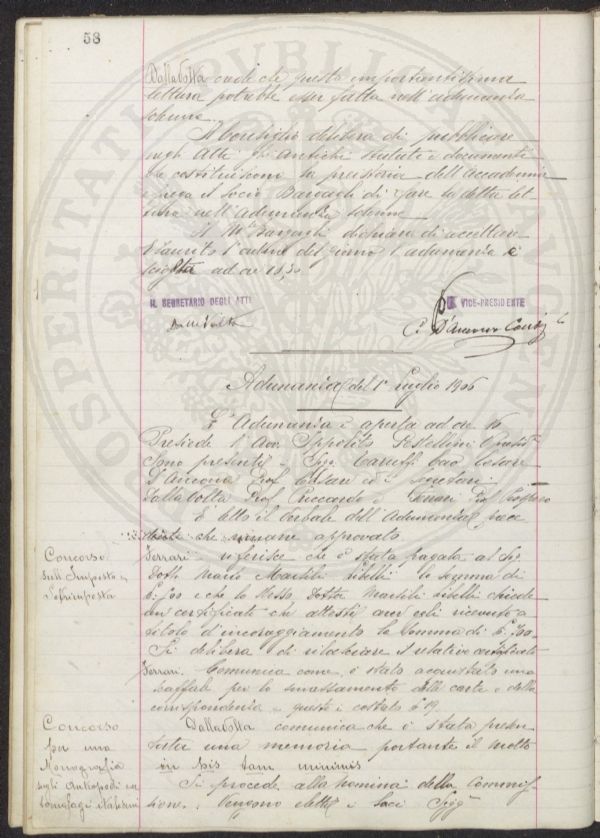 58
Dalla Volta crede che questa importantissima
lettura potrebbe esser fatta nell'adunanza
solenne.
Il Consiglio delibera di pubblicare
negli Atti gli antichi statuti e documenti
che costituiscono la preistoria dell'Accademia
e prega il Socio Bargagli di fare la detta let-
tura nell'Adunanza solenne
Il Mse Bargagli dichiara di accettare
Esaurito l'ordine del giorno l'adunanza è
sciolta ad ore 18,30
IL SEGRETARIO DEGLI ATTI
IL VICE-PRESIDENTE
Dalla Volta
C. D'Ancona
Adunanza del 1° Luglio 1906
L'Adunanza è aperta ad ore 16
Presiede l'Avv. Ippolito Pestellini
Sono presenti i Sigg. Caruffi Cav. Cesare
D'Ancona Prof. Cesare ed i segretari
Dalla Volta Prof. Riccardo e Ferrari Prof.
È letto il verbale dell'Adunanza prece
dente che rimane approvato
Concorso
sull'Imposta e
Sovrimposta
Ferrari - riferisce che è stata pagata al Sig.
Dott. Mario la somma di
e che lo stesso Dottor chiede
un certificato che attesti aver egli ricevuto a
titolo d'incoraggiamento la somma di
Si delibera di rilasciare il relativo certificato
Ferrari. Comunica come è stato acquistato uno
scaffale per lo smistamento delle carte e della
corrispondenza - questo è costato £ 19.
Concorso
per una
Monografia
sugli Artropodi en
tomofagi italiani
Dalla Volta comunica che è stata presen-
tata una memoria portante il motto
in his tam minimis
Si procede alla nomina della Commis-
sione. Vengono eletti i Soci Sigg.